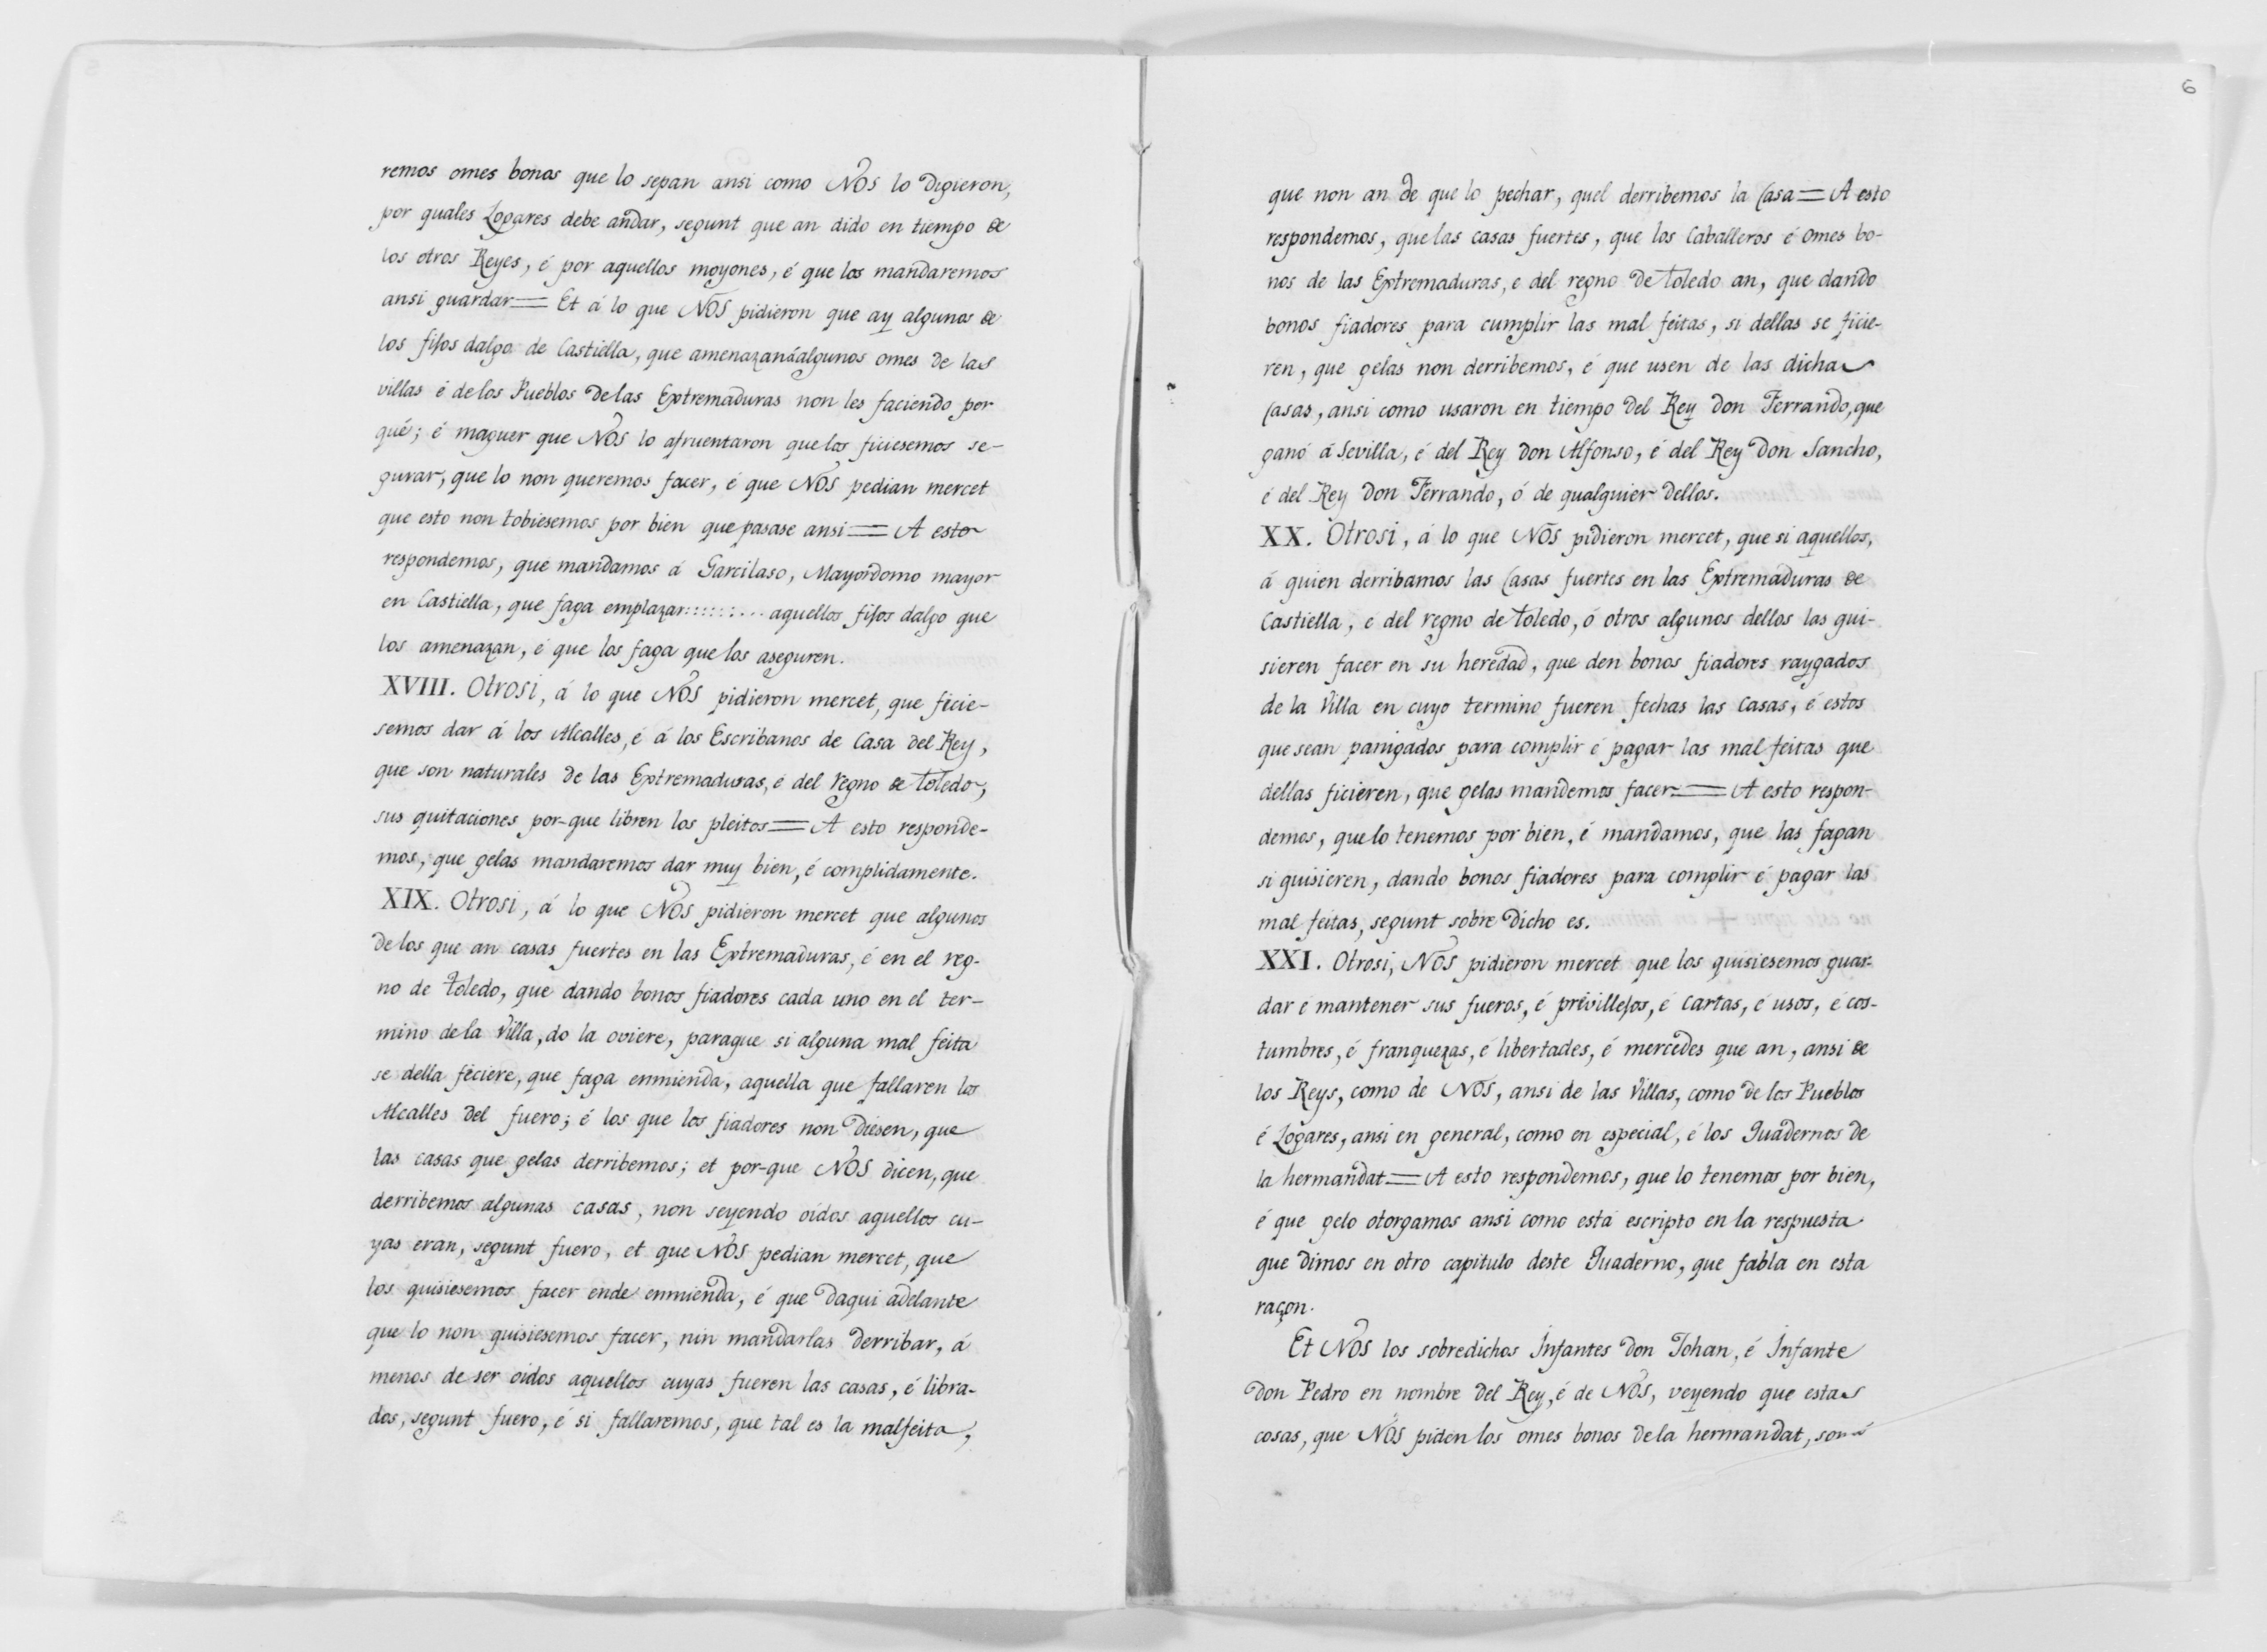 remos omes bonos que lo sepan ansi como NOS lo digieron,
por quales Logares debe andar, segunt que an dido en tiempo de
los otros Reyes, é por aquellos moyones, é que los mandaremos
ansi guardar = Et á lo que NOS pidieron que ay algunos de
los fijos dalgo de Castiella, que amenazan á algunos omes de las
villas é de los Pueblos de las Extremaduras non les faciendo por
qué; é maguer que NOS lo afruentaron que los ficiesemos se-
gurar, que lo non queremos facer, é que NOS pedian mercet
que esto non tobiesemos por bien que pasase ansi = A esto
respondemos, que mandamos á Garcilaso, Mayordomo mayor
en Castiella, que faga emplazar::::::... aquellos fijos dalgo que
los amenazan, é que los faga que los aseguren.
XVIII. Otrosi, á lo que NOS pidieron mercet, que ficie-
semos dar á los Alcalles, é á los Escribanos de Casa del Rey,
que son naturales de las Extremaduras, é del regno de Toledo,
sus quitaciones por-que libren los pleitos = A esto responde-
mos, que gelas mandaremos dar muy bien, é complidamente.
XIX. Otrosi, á lo que NOS pidieron mercet que algunos
de los que an casas fuertes en las Extremaduras, é en el reg-
no de Toledo, que dando bonos fiadores cada uno en el ter-
mino de la Villa, do la oviere, paraque si alguna mal feita
se della feciere, que faga enmienda, aquella que fallaren los
Alcalles del fuero; é los que los fiadores non diesen, que
las casas que gelas derribemos; et por-que NOS dicen, que
derribemos algunas casas, non seyendo oidos aquellos cu-
yas eran, segunt fuero, et que NOS pedian mercet, que
los quisiesemos facer ende enmienda, é que daqui adelante
que lo non quisiesemos facer, nin mandarlas derribar, á
menos de ser oidos aquellos cuyas fueren las casas, é libra-
dos, segunt fuero, é si fallaremos, que tal es la malfeita,
6
que non an de que lo pechar, quel derribemos la Casa = A esto
respondemos, que las casas fuertes, que los Caballeros é omes bo-
nos de las Extremaduras, e del regno de Toledo an, que dando
bonos fiadores para cumplir las mal feitas, si dellas se ficie-
ren, que gelas non derribemos, é que usen de las dichas
Casas, ansi como usaron en tiempo del Rey don Ferrando, que
ganó á Sevilla, é del Rey don Alfonso, é del Rey don Sancho,
é del Rey don Ferrando, ó de qualquier dellos.
XX. Otrosi, á lo que NOS pidieron mercet, que si aquellos,
á quien derribamos las Casas fuertes en las Extremaduras de
Castiella, e del regno de Toledo, ó otros algunos dellos las qui-
sieren facer en su heredad, que den bonos fiadores raygados
de la Villa en cuyo termino fueren fechas las Casas, é estos
que sean panigados para complir é pagar las mal feitas que
dellas ficieren, que gelas mandemos facer = A esto respon-
demos, que lo tenemos por bien, é mandamos, que las fagan
si quisieren, dando bonos fiadores para complir é pagar las
mal feitas, segunt sobre dicho es.
XXI. Otrosi, NOS pidieron mercet que los quisiesemos guar-
dar e mantener sus fueros, é previllejos, é cartas, é usos, é cos-
tumbres, é franquezas, é libertades, é mercedes que an, ansi de
los Reys, como de NOS, ansi de las Villas, como de los Pueblos
é Logares, ansi en general, como en especial, é los Quadernos de
la hermandat = A esto respondemos, que lo tenemos por bien,
é que gelo otorgamos ansi como está escripto en la respuesta
que dimos en otro capitulo deste Quaderno, que fabla en esta
raçon.
Et NOS los sobredichos Infantes don Johan, é Infante
don Pedro en nombre del Rey, é de NOS, veyendo que estas
cosas, que NOS piden los omes bonos de la hermandat, son á